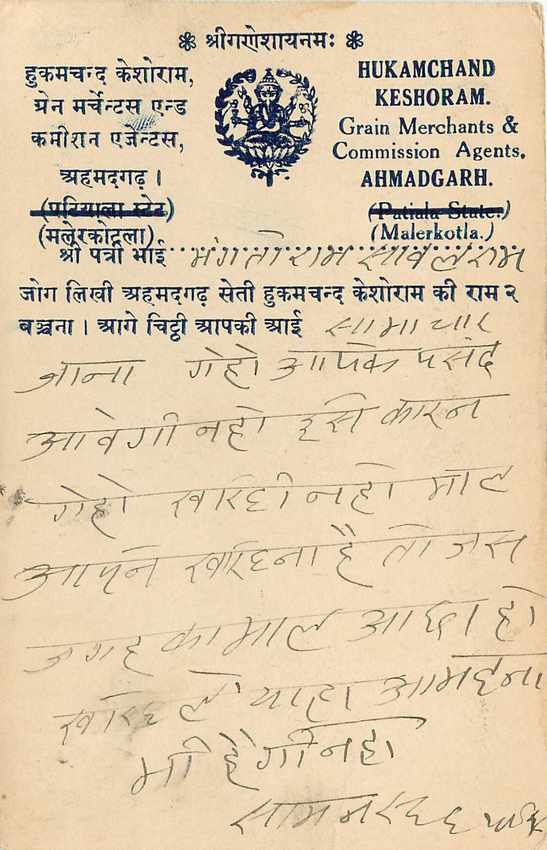 श्रीगणेशायनमः
हुकमचन्द केशोराम,
ग्रेन मर्चेन्टस एन्ड
कमीशन एजेन्टस,
अहमदगढ़ ।
(पटियाला स्टेट)
(मलेरकोटला)
HUKAMCHAND
KESHORAM.
Grain Merchants &
Commission Agents,
AHMADGARH.
(Patiala State.)
(Malerkotla.)
श्री पत्री भाई मंगतोराम सावलराम
जोग लिखी अहमदगढ़ सेती हुकमचन्द केशोराम की राम २
बञ्चना । आगे चिट्ठी आपकी आई सामाचार
जाना गेहो आपके पसंद
आवेगी नही इसे कारन
गेहो खरिदी नही माल
आपने खरिदना है तो जस
जगह का माल आछा हो
ले याहा आमदना
मी है गी नही